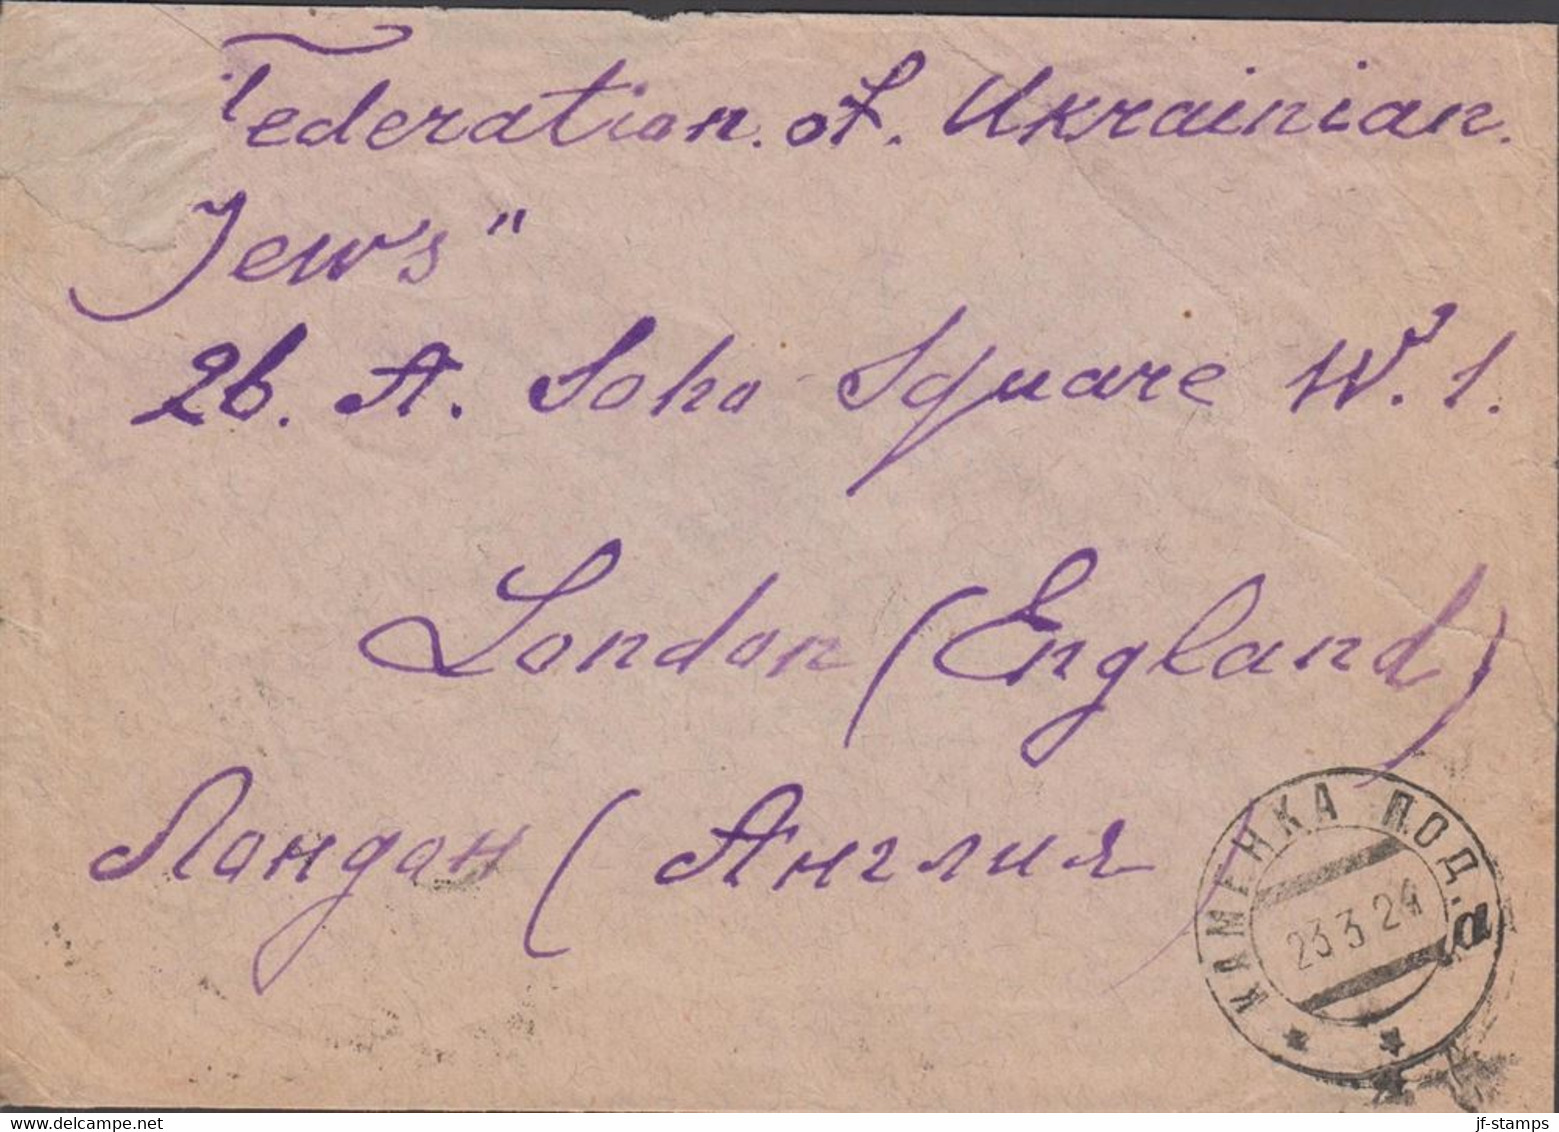 "Federation. of. Ukrainian.
Jews"
26. A. Soho Square W. 1.
London (England)
Лондон (Англия)
КАМЕНКА ПОД.
23 3 24
а
jf-stamps